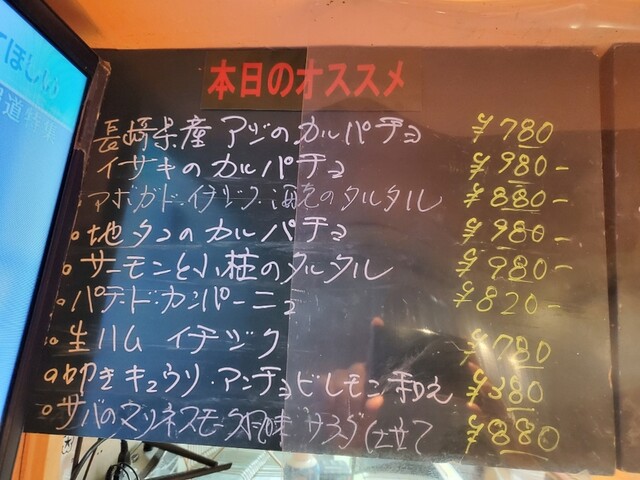 てほしい
道
本日のオススメ
長崎県産 アジのカルパチョ ¥780
イサキのカルパチョ ¥980-
アボガド・イチジク・海老のタルタル ¥880-
地タコのカルパチョ ¥980-
サーモンと小柱のタルタル ¥980-
パテ・ド・カンパーニュ ¥820-
生ハム イチジク ¥780
叩きキュウリ・アンチョビレモン和え ¥380
サバのマリネスモーク風味 サラダ仕立て ¥880